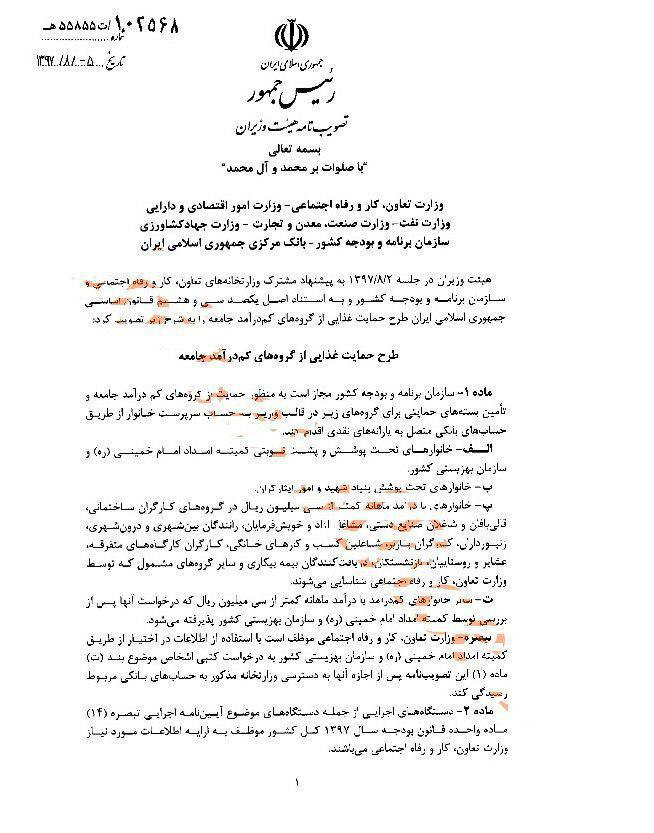 شماره ۱۰۲۵۶۸/ت۵۵۸۵۵هـ
تاریخ ۱۳۹۷/۸/۰۵
جمهوری اسلامی ایران
رئیس جمهور
تصویب نامه هیئت وزیران
بسمه تعالی
"با صلوات بر محمد و آل محمد"
وزارت تعاون، کار و رفاه اجتماعی- وزارت امور اقتصادی و دارایی
وزارت نفت- وزارت صنعت، معدن و تجارت - وزارت جهادکشاورزی
سازمان برنامه و بودجه کشور- بانک مرکزی جمهوری اسلامی ایران
هیئت وزیران در جلسه ۱۳۹۷/۸/۲ به پیشنهاد مشترک وزارتخانه‌های تعاون، کار و رفاه اجتماعی و
سازمان برنامه و بودجه کشور و به استناد اصل یکصد و سی و هشتم قانون اساسی
جمهوری اسلامی ایران طرح حمایت غذایی از گروه‌های کم‌درآمد جامعه را به شرح زیر تصویب کرد:
طرح حمایت غذایی از گروه‌های کم‌درآمد جامعه
ماده ۱- سازمان برنامه و بودجه کشور مجاز است به منظور حمایت از گروه‌های کم درآمد جامعه و
تأمین بسته‌های حمایتی برای گروه‌های زیر در قالب واریز به حساب سرپرست خانوار از طریق
حساب‌های بانکی متصل به یارانه‌های نقدی اقدام کند.
الف- خانوارهای تحت پوشش و پشت نوبتی کمیته امداد امام خمینی (ره) و
سازمان بهزیستی کشور.
ب- خانوارهای تحت پوشش بنیاد شهید و امور ایثارگران.
پ- خانوارهای با درآمد ماهانه کمتر از سی میلیون ریال در گروه‌های کارگران ساختمانی،
قالی‌بافان و شاغلان صنایع دستی، مشاغل آزاد و خویش‌فرمایان، رانندگان بین‌شهری و درون‌شهری،
زنبورداران، کارگران باربر، شاغلین کسب و کارهای خانگی، کارگران کارگاه‌های متفرقه،
عشایر و روستاییان، بازنشستگان، دریافت‌کنندگان بیمه بیکاری و سایر گروه‌های مشمول که توسط
وزارت تعاون، کار و رفاه اجتماعی شناسایی می‌شوند.
ت- سایر خانوارهای کم‌درآمد با درآمد ماهانه کمتر از سی میلیون ریال که درخواست آنها پس از
بررسی توسط کمیته امداد امام خمینی (ره) و سازمان بهزیستی کشور پذیرفته می‌شود.
تبصره- وزارت تعاون، کار و رفاه اجتماعی موظف است با استفاده از اطلاعات در اختیار از طریق
کمیته امداد امام خمینی (ره) و سازمان بهزیستی کشور به درخواست کتبی اشخاص موضوع بند (ت)
ماده (۱) این تصویب‌نامه پس از اجازه آنها به دسترسی وزارتخانه مذکور به حساب‌های بانکی مربوط
رسیدگی کند.
ماده ۲- دستگاه‌های اجرایی از جمله دستگاه‌های موضوع آیین‌نامه اجرایی تبصره (۱۴)
ماده واحده قانون بودجه سال ۱۳۹۷ کل کشور موظف به ارایه اطلاعات مورد نیاز
وزارت تعاون، کار و رفاه اجتماعی می‌باشند.
۱